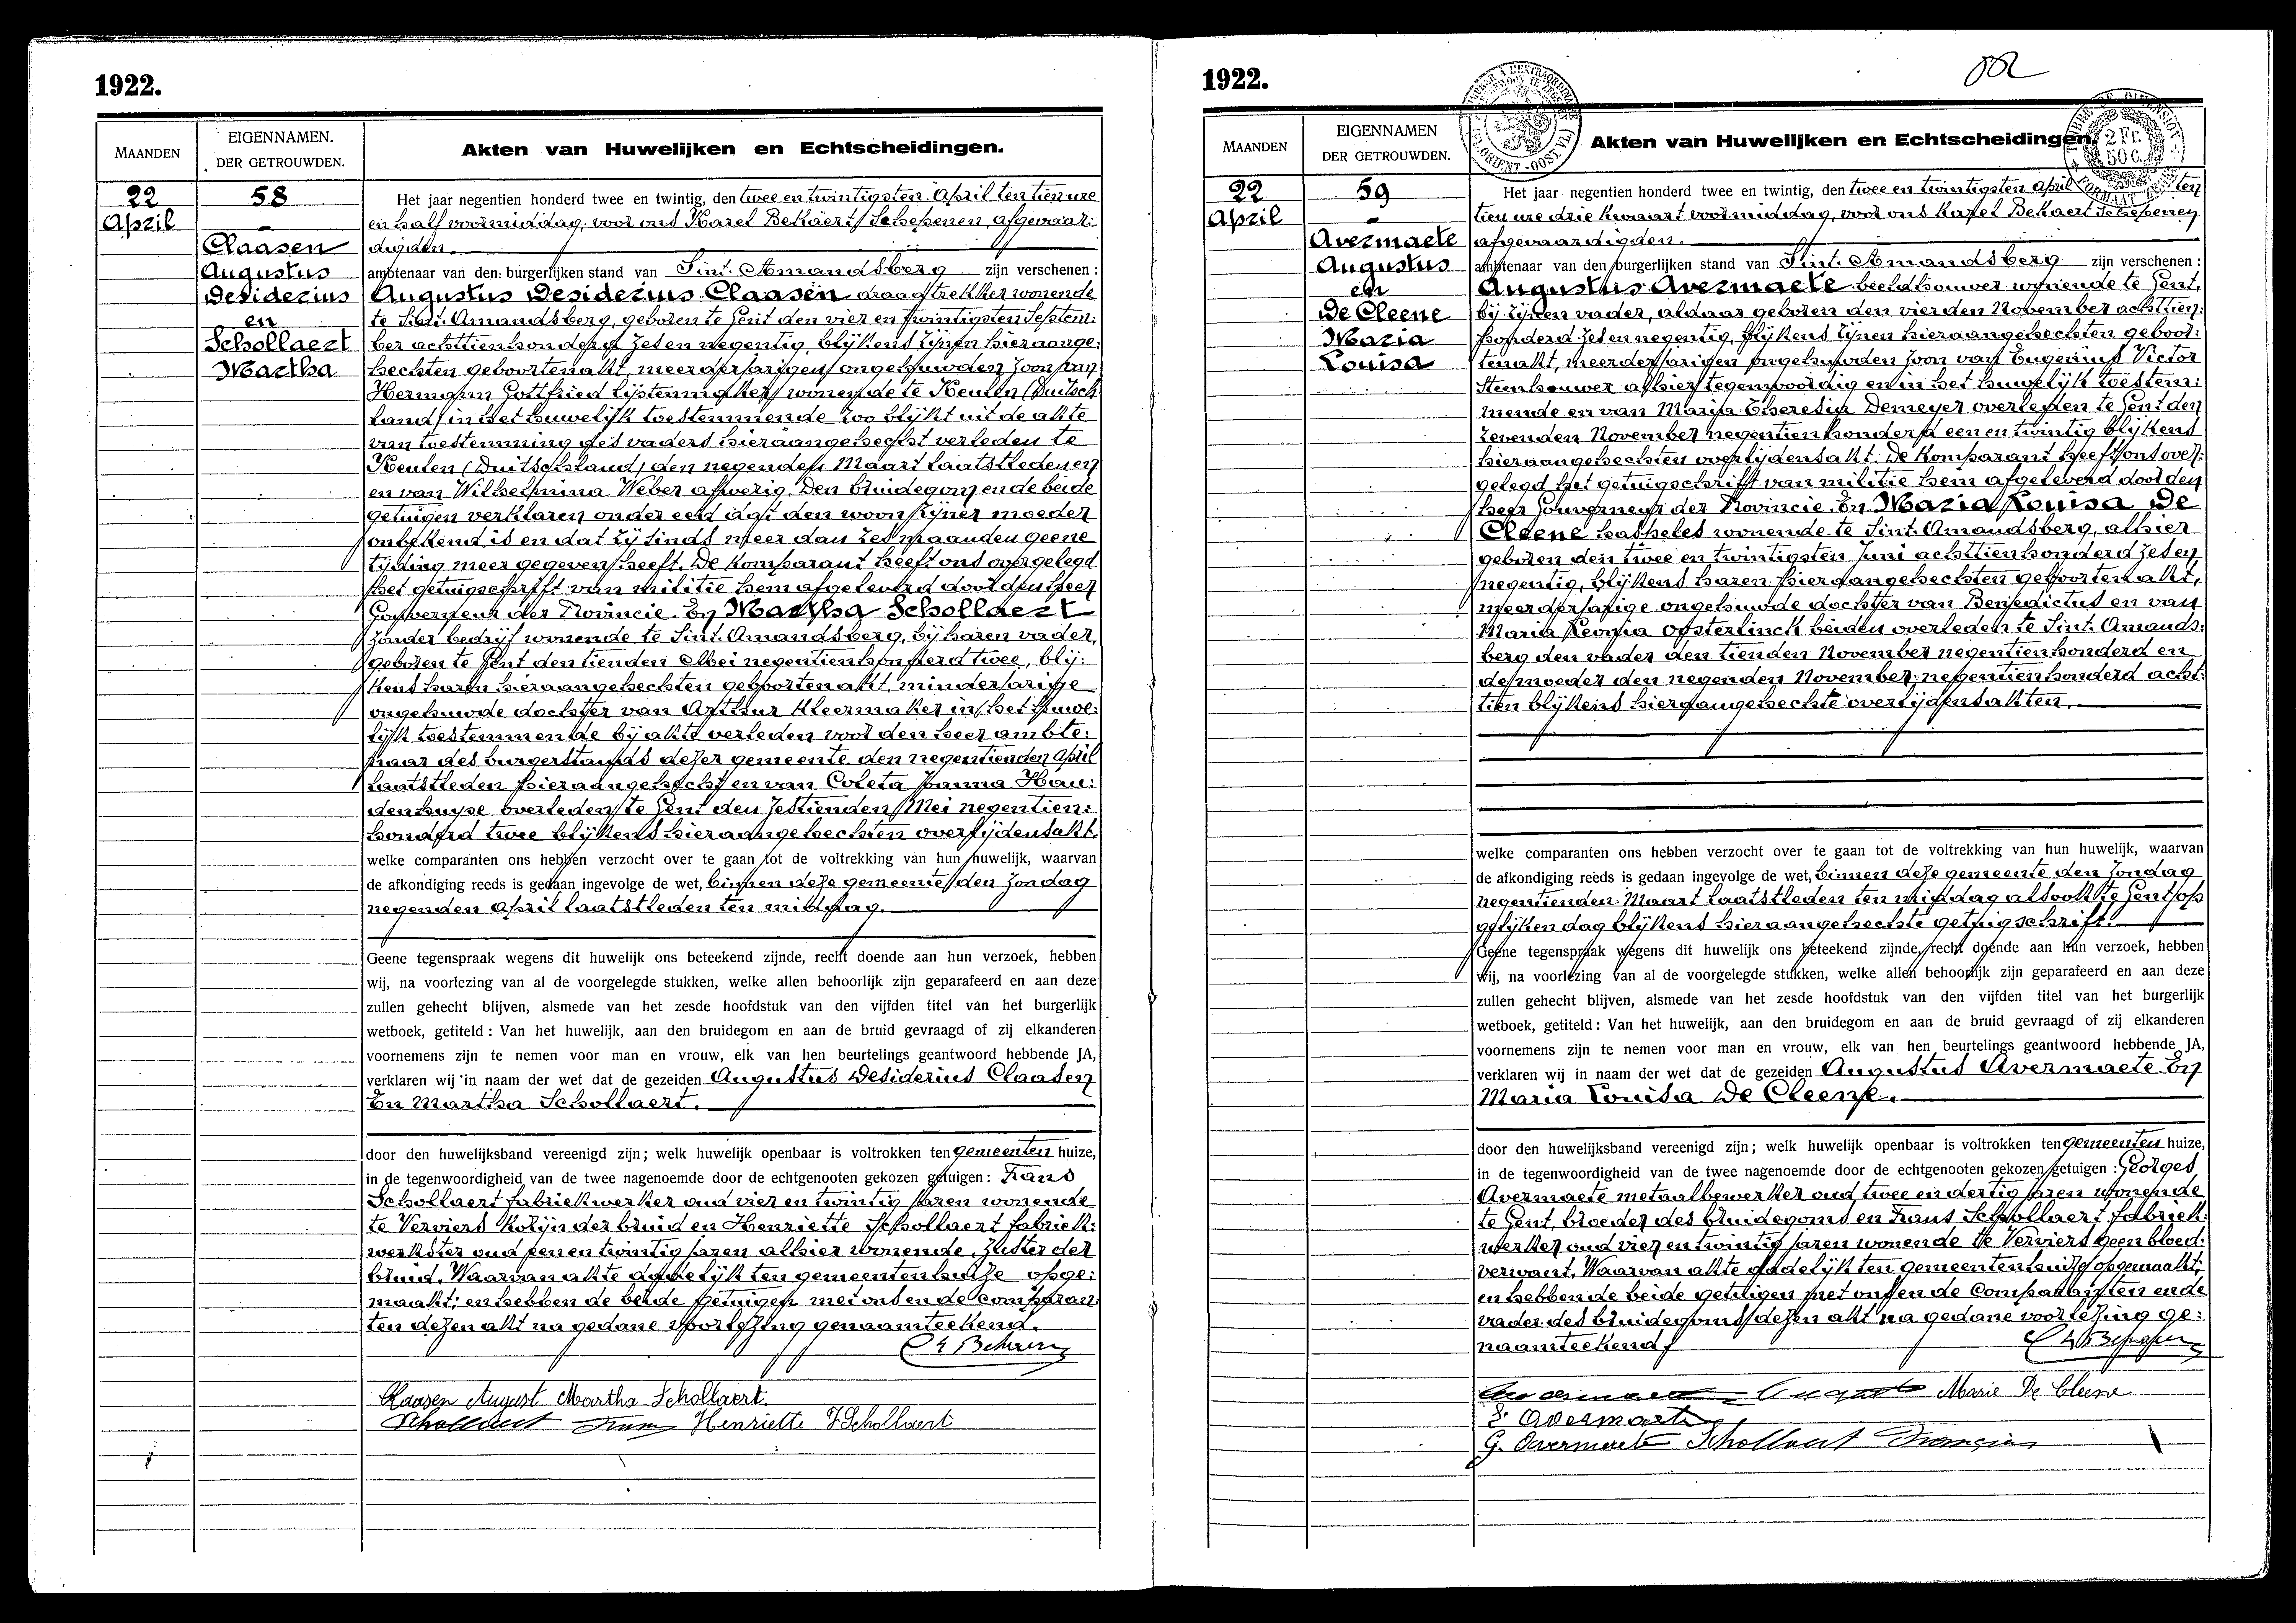 1922.
MAANDEN
EIGENNAMEN.
DER GETROUWDEN.
Akten van Huwelijken en Echtscheidingen.
22
April
58
Claasen
Augustus
Desiderius
en
Schollaert
Martha
Het jaar negentien honderd twee en twintig, den twee en twintigsten April ten tien ure
en half voormiddag, voor ons Karel Bekaert, Schepenen, afgevaar:
digden.
ambtenaar van den burgerlijken stand van Sint. Amandsberg zijn verschenen:
Augustus Desiderius Claasen draadtrekker wonende
te Sint. Amandsberg, geboren te Gent den vier en twintigsten Septem:
ber achttienhonderd zes en negentig, blijkens zijnen hieraange:
hechten geboortenakt, meerderjarigen ongehuwden zoon van
Hermann Gottfried lijstenmaker wonende te Keulen (Duitsch
land) in het huwelijk toestemmende zoo blijkt uit de akte
van toestemming des vaders hieraangehecht verleden te
Keulen (Duitschland) den negenden Maart laatstleden en
en van Wilhelmina Weber afwezig. Den bruidegom en de beide
getuigen verklaren onder eed dat den woon zijner moeder
onbekend is en dat zij sinds meer dan zes maanden geene
tijding meer gegeven heeft. De komparant heeft ons overgelegd
het getuigschrift van militie hem afgeleverd door den heer
Gouverneur der Provincie. En Martha Schollaert
zonder bedrijf wonende te Sint. Amandsberg, bij haren vader,
geboren te Gent den tienden Mei negentienhonderd twee, blij:
kens haren hieraangehechten geboortenakt, minderjarige
ongehuwde dochter van Arthur kleermaker in het huwe:
lijk toestemmende bij akte verleden voor den heer ambte:
naar des burgerstands dezer gemeente den negentienden April
laatstleden hieraangehecht en van Coleta Joanna Hau:
denhuyse overleden te Gent den zestienden Mei negentien:
honderd twee blijkens hieraangehechten overlijdensakt.
welke comparanten ons hebben verzocht over te gaan tot de voltrekking van hun huwelijk, waarvan
de afkondiging reeds is gedaan ingevolge de wet, binnen deze gemeente den Zondag
negenden April laatstleden ten middag.
Geene tegenspraak wegens dit huwelijk ons beteekend zijnde, recht doende aan hun verzoek, hebben
wij, na voorlezing van al de voorgelegde stukken, welke allen behoorlijk zijn geparafeerd en aan deze
zullen gehecht blijven, alsmede van het zesde hoofdstuk van den vijfden titel van het burgerlijk
wetboek, getiteld: Van het huwelijk, aan den bruidegom en aan de bruid gevraagd of zij elkanderen
voornemens zijn te nemen voor man en vrouw, elk van hen beurtelings geantwoord hebbende JA,
verklaren wij in naam der wet dat de gezeiden Augustus Desiderius Claasen
En Martha Schollaert.
door den huwelijksband vereenigd zijn; welk huwelijk openbaar is voltrokken ten gemeenten huize,
in de tegenwoordigheid van de twee nagenoemde door de echtgenooten gekozen getuigen: Frans
Schollaert fabriekwerker oud vier en twintig jaren wonende
te Verviers kozijn der bruid en Henriette Schollaert fabriek:
werkster oud een en twintig jaren alhier wonende, zuster der
bruid. Waarvan akte dadelijk ten gemeentenhuize opge:
maakt; en hebben de beide getuigen met ons en de comparan:
ten dezen akt na gedane voorlezing genaamteekend.
Claasen August Martha Schollaert.
Schollaert Frans Henriette Schollaert
1922.
MAANDEN
EIGENNAMEN
DER GETROUWDEN.
Akten van Huwelijken en Echtscheidingen.
2 Fr.
50 C.
22
April
59
Avermaete
Augustus
en
De Cleene
Maria
Louisa
Het jaar negentien honderd twee en twintig, den twee en twintigsten April ten
tien ure drie kwaart voormiddag, voor ons Karel Bekaert Schepenen
afgevaardigden.
ambtenaar van den burgerlijken stand van Sint. Amandsberg zijn verschenen:
Augustus Avermaete beeldhouwer wonende te Gent,
bij zijnen vader, aldaar geboren den vierden November achttien:
honderd zes en negentig, blijkens zijnen hieraangehechten geboor:
tenakt, meerderjarigen ongehuwden zoon van Eugenius Victor
Steenhouwer alhier tegenwoordig en in het huwelijk toestem:
mende en van Maria Theresia Demeyer overleden te Gent den
zevenden November negentienhonderd een en twintig blijkens
hieraangehechten overlijdensakt. De komparant heeft ons over:
gelegd het getuigschrift van militie hem afgeleverd door den
heer Gouverneur der Provincie. En Maria Louisa De
Cleene haspeles wonende te Sint. Amandsberg, alhier
geboren den twee en twintigsten Juni achttienhonderd zes en
negentig, blijkens haren hieraangehechten geboortenakt,
meerderjarige ongehuwde dochter van Benedictus en van
Maria Leonia Oosterlinck beiden overleden te Sint. Amands:
berg den vader den tienden November negentienhonderd en
de moeder den negenden November negentienhonderd acht:
tien blijkens hieraangehechte overlijdensakten.
welke comparanten ons hebben verzocht over te gaan tot de voltrekking van hun huwelijk, waarvan
de afkondiging reeds is gedaan ingevolge de wet, binnen deze gemeente den Zondag
negentienden Maart laatstleden ten middag alsook te Gent op
gelijken dag blijkens hieraangehechte getuigschrift.
Geene tegenspraak wegens dit huwelijk ons beteekend zijnde, recht doende aan hun verzoek, hebben
wij, na voorlezing van al de voorgelegde stukken, welke allen behoorlijk zijn geparafeerd en aan deze
zullen gehecht blijven, alsmede van het zesde hoofdstuk van den vijfden titel van het burgerlijk
wetboek, getiteld: Van het huwelijk, aan den bruidegom en aan de bruid gevraagd of zij elkanderen
voornemens zijn te nemen voor man en vrouw, elk van hen beurtelings geantwoord hebbende JA,
verklaren wij in naam der wet dat de gezeiden Augustus Avermaete En
Maria Louisa De Cleene.
door den huwelijksband vereenigd zijn; welk huwelijk openbaar is voltrokken ten gemeenten huize,
in de tegenwoordigheid van de twee nagenoemde door de echtgenooten gekozen getuigen: Georges
Avermaete metaalbewerker oud twee en dertig jaren wonende
te Gent, broeder des bruidegoms en Frans Schollaert fabriek:
werker oud vier en twintig jaren wonende te Verviers geen bloed:
verwant. Waarvan akte dadelijk ten gemeentenhuize opgemaakt;
en hebben de beide getuigen met ons en de Comparanten en de
vader des bruidegoms dezen akt na gedane voorlezing ge:
naamteekend
Avermaete August Marie De Cleene
E. Avermaete
G. Avermaete Schollaert François